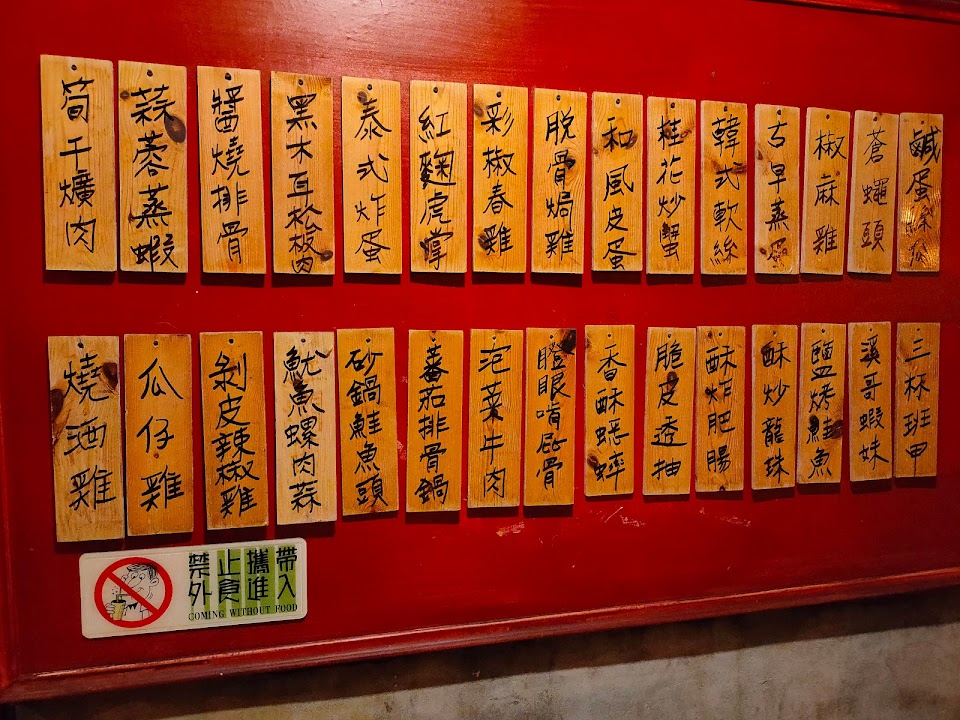 筍干爌肉
蒜蓉蒸蝦
醬燒排骨
黑木耳松板肉
泰式炸蛋
紅麴虎掌
彩椒春雞
脫骨焗雞
和風皮蛋
桂花炒蟹
韓式軟絲
古早蒸蛋
椒麻雞
蒼蠅頭
鹹蛋絲瓜
燒酒雞
瓜仔雞
剝皮辣椒雞
魷魚螺肉蒜
砂鍋鮭魚頭
蕃茄排骨鍋
泡菜牛肉
瞪眼啃屁骨
香酥蟋蟀
脆皮透抽
酥炸肥腸
酥炒龍珠
鹽烤鮭魚
溪哥蝦妹
三杯班甲
禁止攜帶
外食進入
COMING WITHOUT FOOD